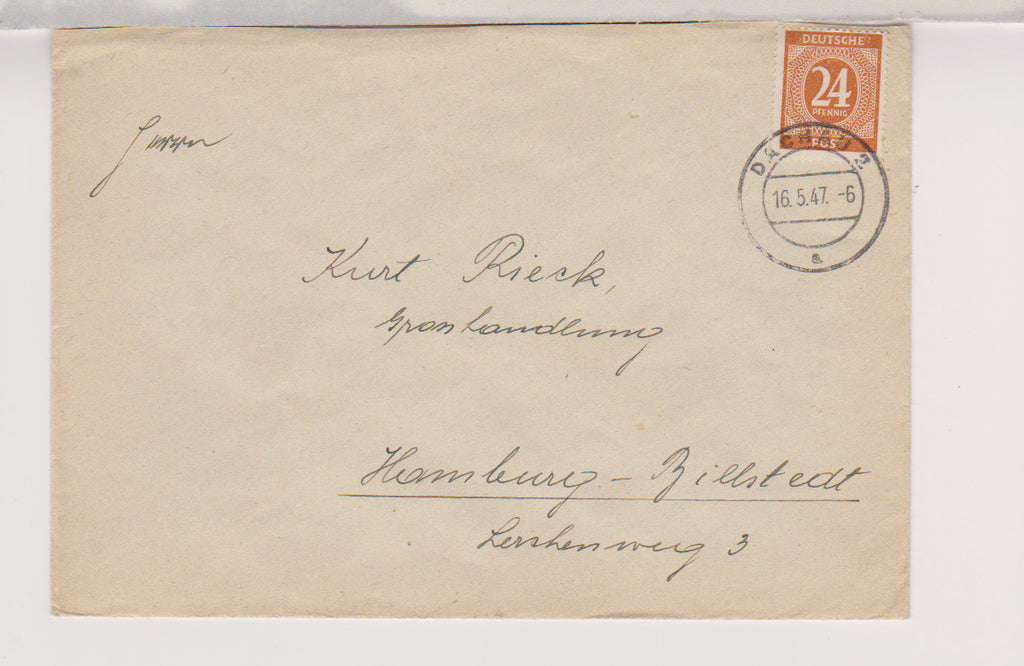 DEUTSCHE
24
PFENNIG
POST
DACHAU 2
16.5.47. -6
a
Herrn
Kurt Rieck,
Grosshandlung
Hamburg-Billstedt
Lerchenweg 3